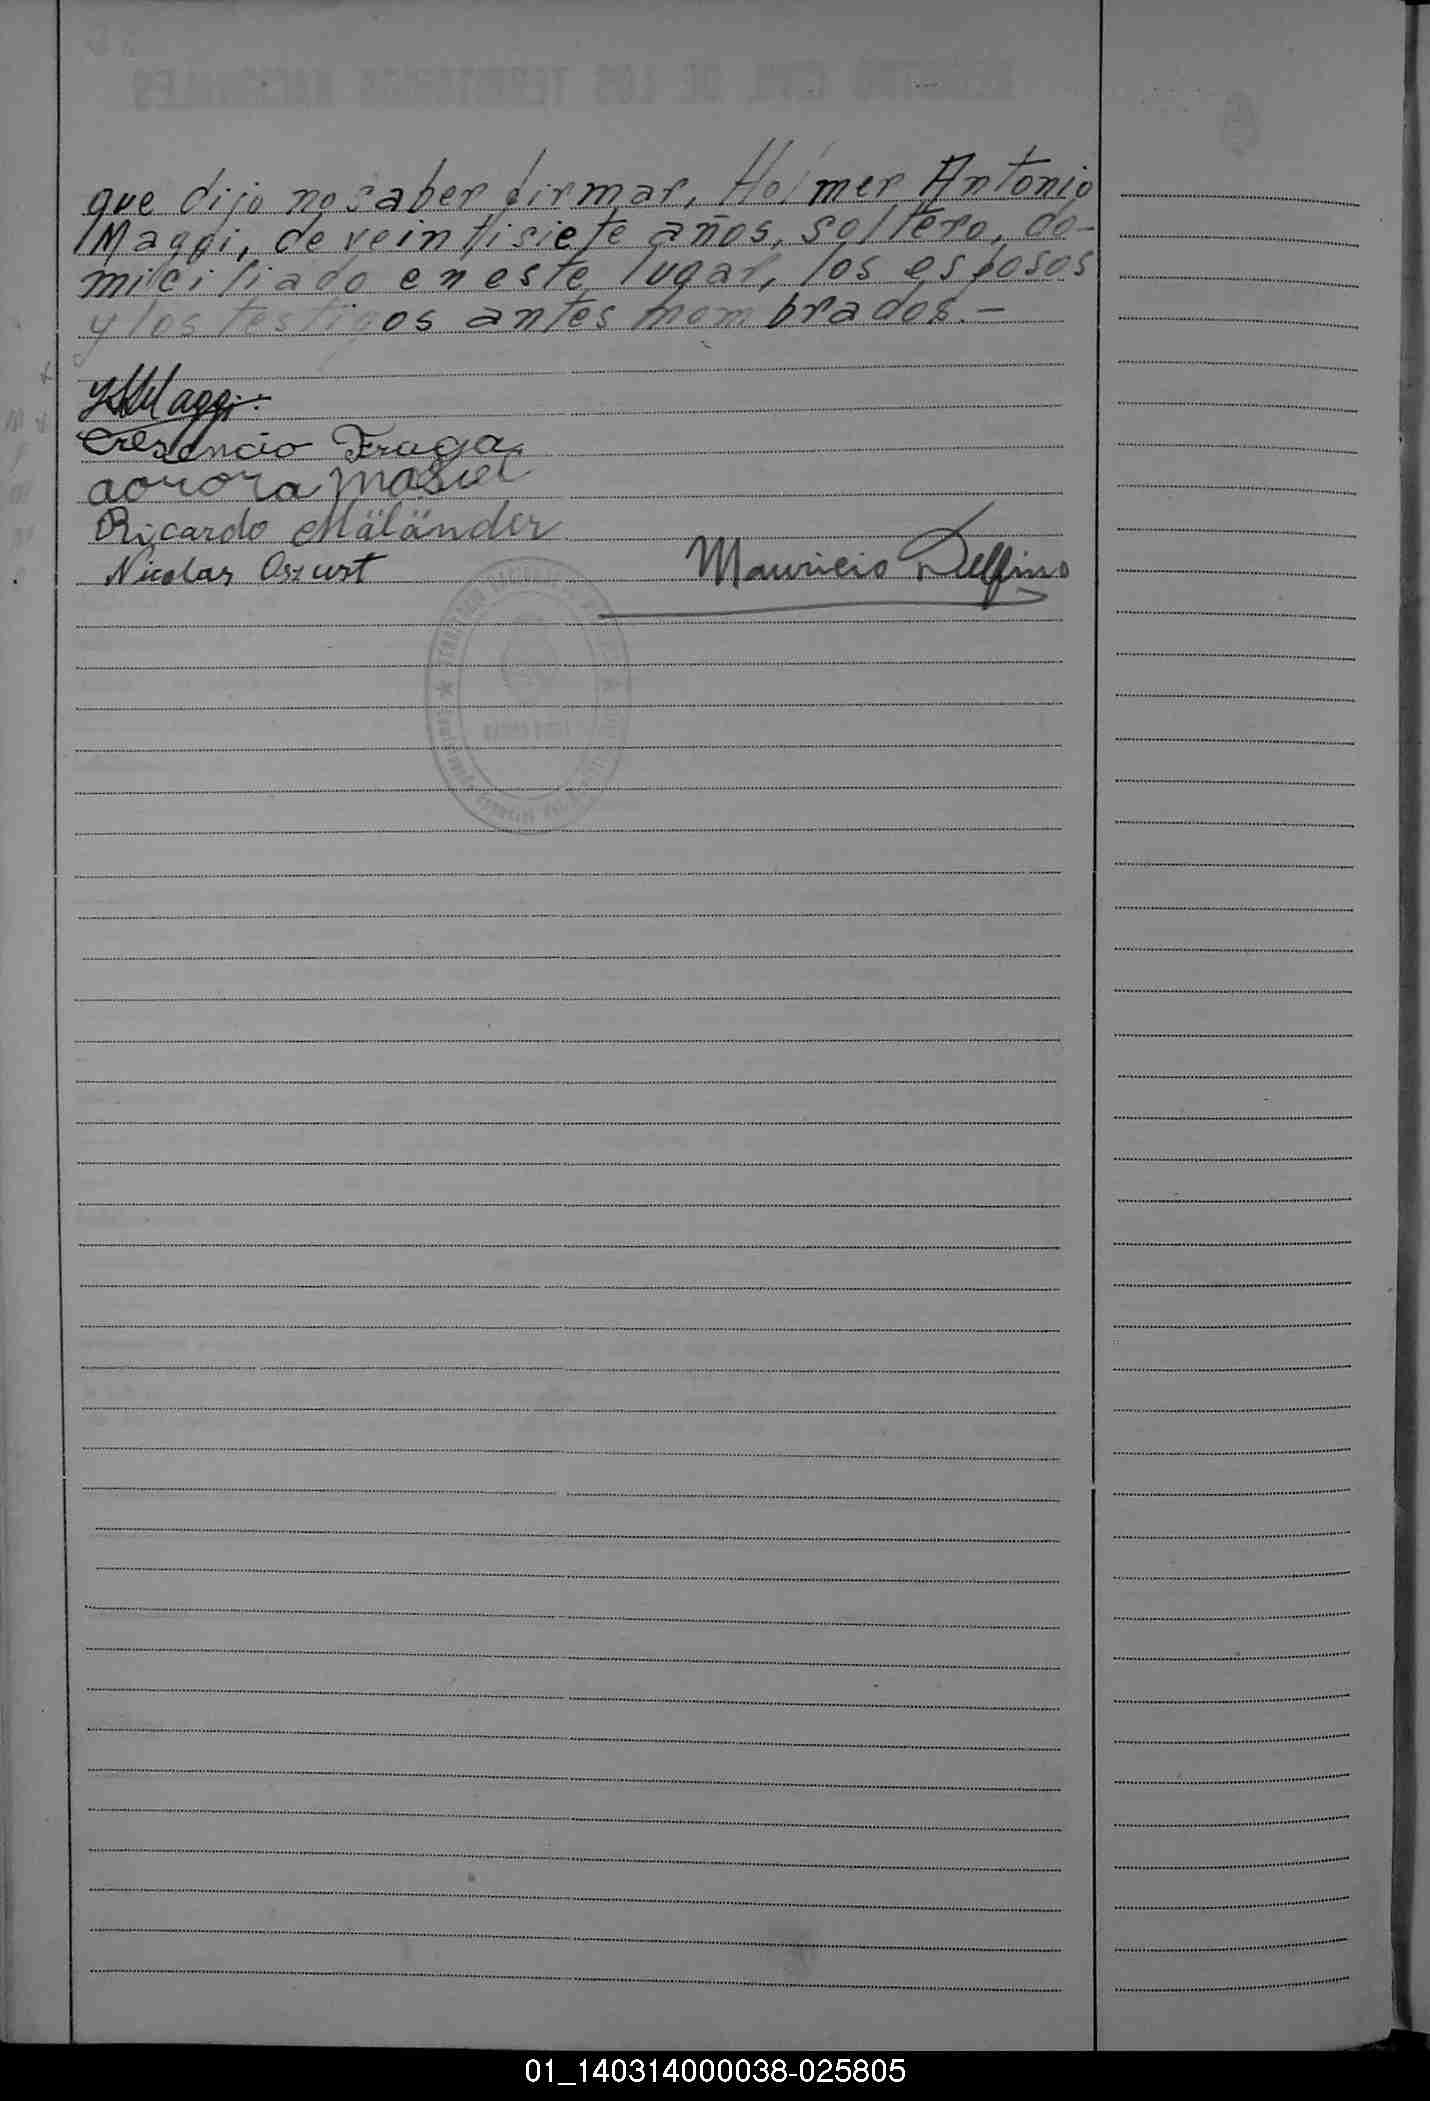 que dijo no saber firmar, Holmer Antonio
Maggi, de veintisiete años, soltero, do-
miciliado en este lugar, los esposos
y los testigos antes nombrados.-
Maggi
Cresencio Fraga
aorora Masiel
Ricardo Mäländer
Nicolas
Mauricio Delfino
01_140314000038-025805